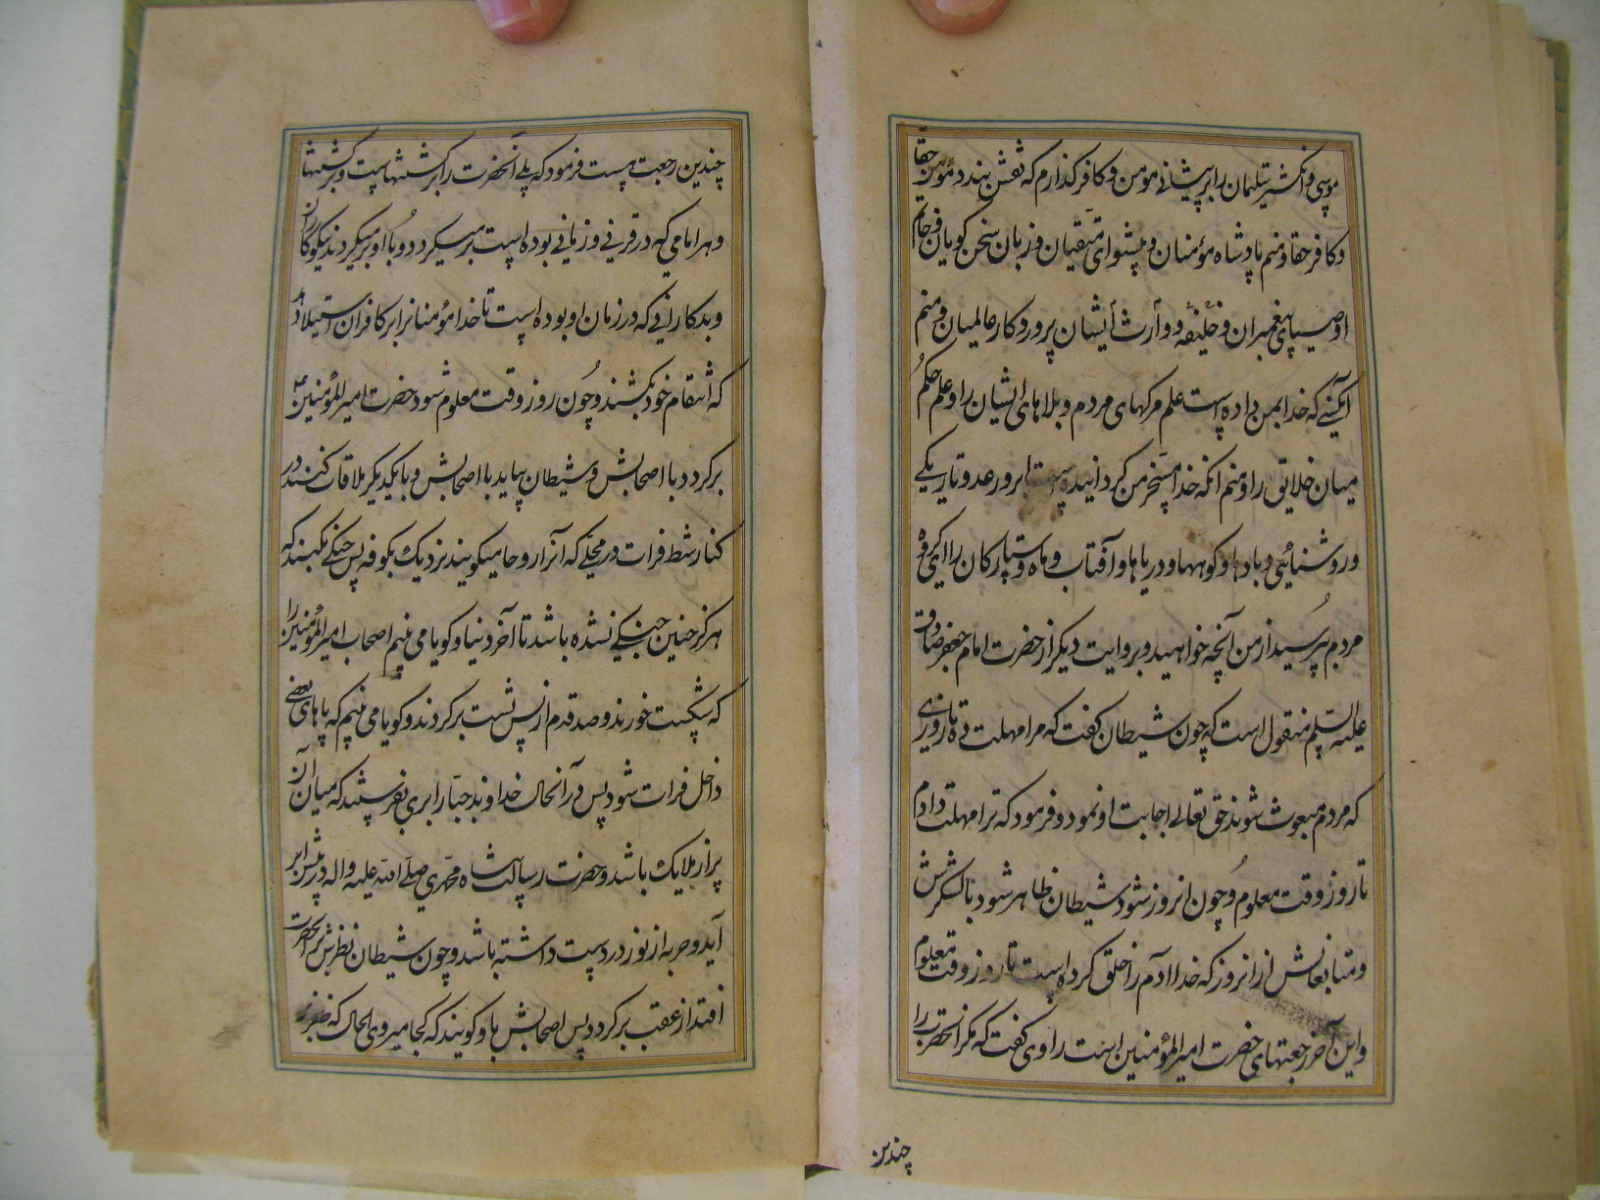 موسی و انکشتر سلیمان را بر پیشانی مومن و کافر کذارم که نقش بندد مؤمن حقا
و کافر حقا و منم پادشاه مؤمنان و پیشوای متقیان و زبان سخن کویان و خاتم
اوصیای پیغمبران و خلیفه و وارث ایشان پروردکار عالمیان و منم
آنکسی که خدا بمن داده است علم مرکهای مردم و بلاهای ایشان را و علم حکم
میان خلایق را و منم انکه خدا مسخر من کردانیده است ابر و رعد و تاریکی
و روشنائی و بادها و کوهها و دریاها و آفتاب و ماه و ستارکان را ای کروه
مردم بپرسید از من آنچه خواهید و بروایت دیکر از حضرت امام جعفر صادق
علیه السلام منقول است که چون شیطان کفت که مرا مهلت ده تا روزی
که مردم مبعوث شوند حق تعالی اجابت او نمود و فرمود که ترا مهلت دادم
تا روز وقت معلوم و چون انروز شود شیطان ظاهر شود با لشکرش
و متابعانش از انروز که خدا ادم را خلق کرده است تا روز وقت معلوم
و این آخر رجعتهای حضرت امیرالمؤمنین است راوی کفت که مکر انحضرت را
چندین
چندین رجعت هست فرمود که بلی انحضرت را برکشتنهاست و برکشتنها
و هر امامی که در قرنی و زمانی بوده است برمیکردد و با او برمیکردند نیکوکاران
و بدکارانی که در زمان او بوده است تا خدا مؤمنانرا بر کافران استیلا دهد
که انتقام خود بکشند و چون روز وقت معلوم شود حضرت امیرالمؤمنین ع
برکردد با اصحابش و شیطان بیاید با اصحابش و با یکدیکر ملاقات کنند در
کنار شط فرات در محلی که آنرا روحا میکویند نزدیک بکوفه پس جنکی بکنند که
هرکز چنین جنکی نشده باشد تا آخر دنیا و کویا می بینم اصحاب امیرالمؤمنین را
که شکست خورند و صد قدم از پس پشت برکردند و کویا می بینم که پاهای بعضی
داخل فرات شود پس در آنحال خداوند جبار ابری بفرستد که میان آن
پر از ملایک باشد و حضرت رسالت پناه محمدی صلی الله علیه واله در پیش ابر
آید و حربه از نور در دست داشته باشد و چون شیطان نظرش بر انحضرت
افتد از عقب برکردد پس اصحابش باو کویند که کجا میروی الحال که ظفر